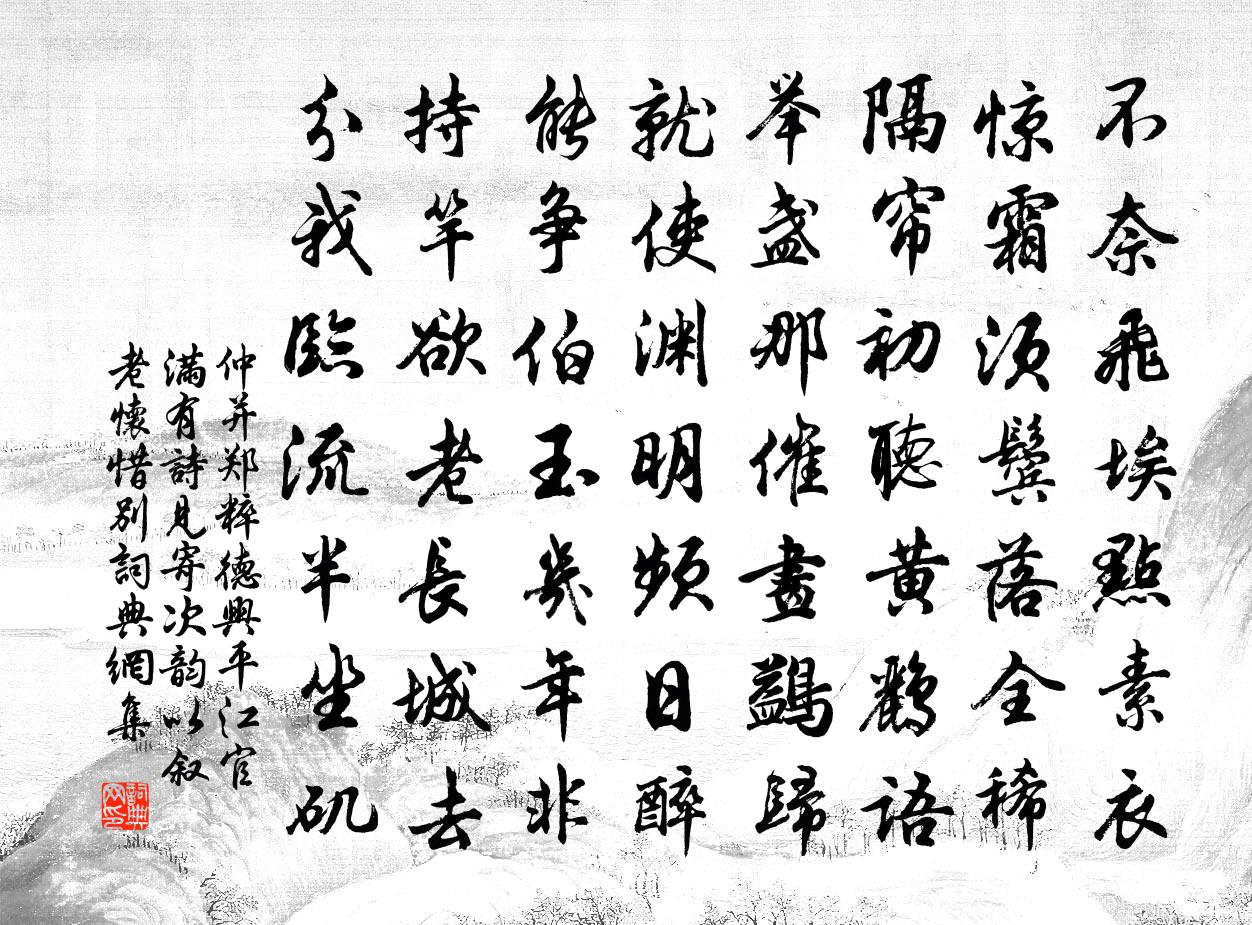 不奈飛埃點素衣
惊霜須鬓落全稀
隔帘初聽黄鸝語
举盏那催畫鷁歸
就使渊明頻日醉
能争伯玉幾年非
持竿欲老長城去
分我臨流半坐矶
仲并郑粹德興平江官
满有詩見寄次韵以叙
老懷惜别詞典網集
詞典
网印